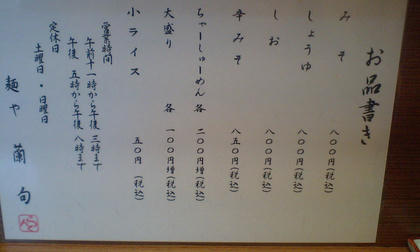 お品書き
みそ 八〇〇円(税込)
しょうゆ 八〇〇円(税込)
しお 八〇〇円(税込)
辛みそ 八五〇円(税込)
ちゃーしゅーめん 各 二〇〇円増(税込)
大盛り 各 一〇〇円増(税込)
小ライス 五〇円(税込)
営業時間
午前十一時から午後三時まで
午後五時から午後八時まで
定休日
土曜日・日曜日
麺や 蘭句